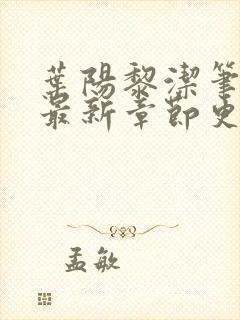 葉陽黎潔筆
最新章節更
孟敏